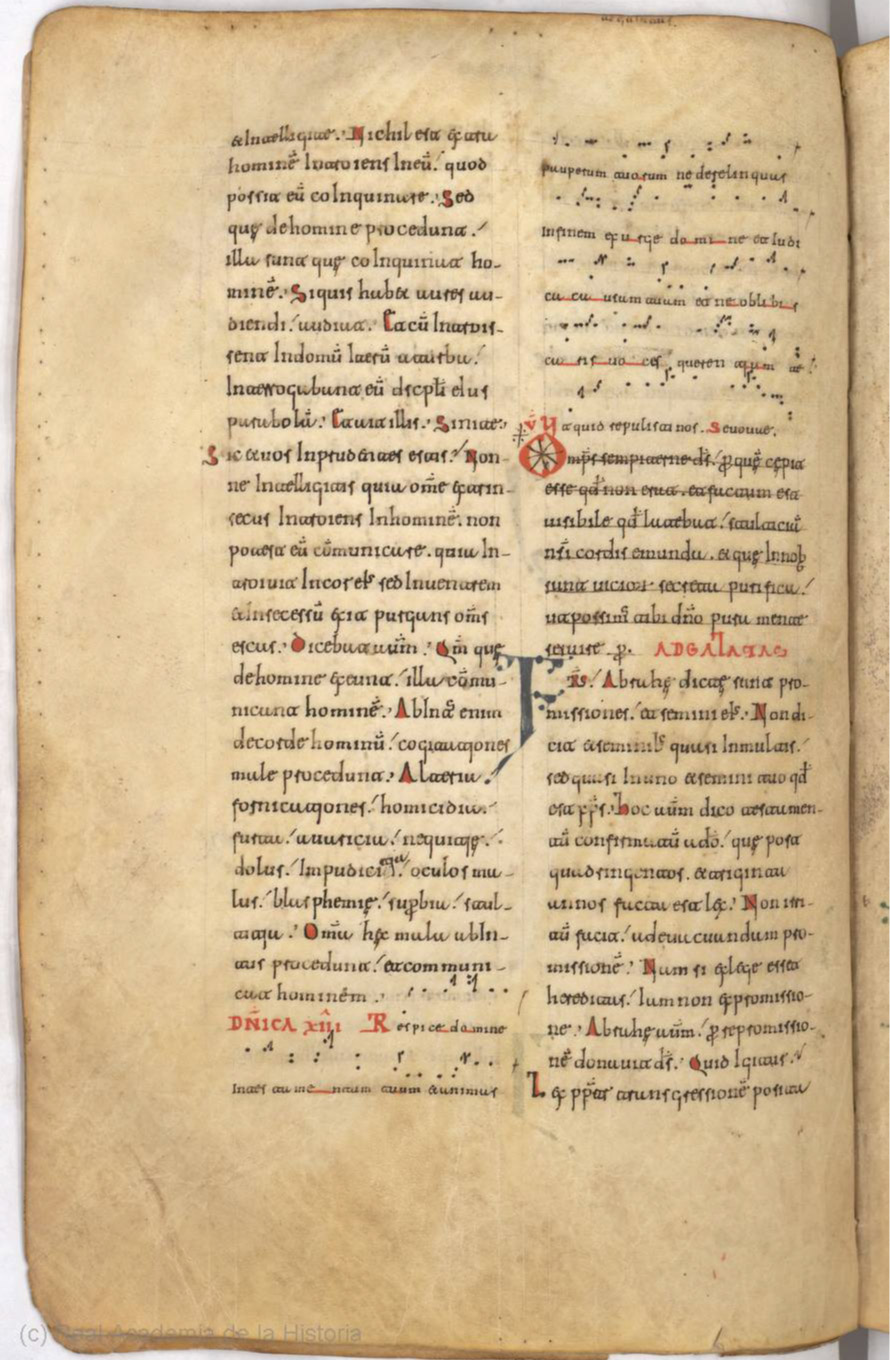 & Intelligite. Nichil est extra
hominē Introiens Ineū. quod
possit eū coInquinare. Sed
quę dehomine procedunt.
illa sunt quę coInquinant ho-
minē. Siquis habet aures au-
diendi. audiat. Etcū Introis-
sent Indomū laetū a turba.
Interrogabant eū discpłi eIus
parabolā. Etait illis. Sintac
Sic & uos Inprudentes estis. Non-
ne Intelligitis quia om̄e extrin-
secus Introiens Inhominē. non
potest eū cōmunicare. quia In-
troiuit Incor ei' sed Inuentrem
& Insecessū exit purgans om̄s
escas. Dicebat autm̄. Qm̄ quę
dehomine exeunt. illa cōmu-
nicant hominē. AbIntꝰ enim
decorde hominū cogitationes
male procedunt. Adulteria.
fornicationes. homicidia.
furta. auaricia. nequitię.
dolus. Impudicitia. oculos ma-
lus. blasphemię. supbia. stul-
titia. Om̄a hęc mala abIn-
tus procedunt. etcommuni-
cant hominem.
DN̄ICA XIII Respice domine
Intestamentum tuum & animas
pauperum tuorum ne derelinquas
Infinem exurge domine et Iudi
ca causam tuam et ne obliuis
caris uoces querentium te
Vt quid repulisti nos. Seuouae.
Omp̄s sempiterne ds̄. p quē cępit
esse qd̄ non erat. et factum est
uisibile qd̄ latebat. stulticiā
nr̄i cordis emunda. & quę Innob
sunt uicior secreta purifica.
ut possimꝰ tibi dn̄o pura mente
seruire. p. ADGALATAS
FR̄S. Abrahę dictę sunt pro-
missiones. et semini ei'. Nondi-
cit & seminib' quasi Inmultis.
sed quasi Inuno & semini tuo qd̄
est xp̄s. Hoc autm̄ dico testamen-
tū confirmatū a dō. quę post
quadringentos. & triginta
annos facta est lex. Non irri-
tū facit. ad euacuandum pro-
missionē. Nam si exlege esset
hereditas. Iam non expromissio-
ne. Abrahę autm̄. p repromissio-
nē donauit ds̄. Quid Igitur.
Lex pp̄ter transgressionē posita